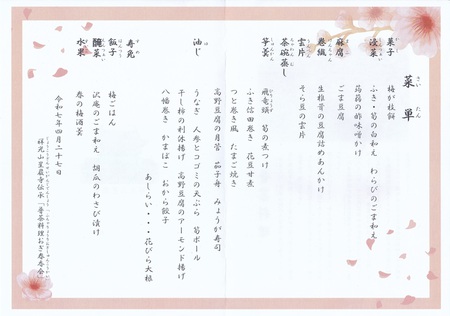 菜単
菓子 梅が枝餅
浸菜 ふき・筍の白和え わらびのごま和え
蒟蒻の酢味噌かけ
麻腐 ごま豆腐
巻繊 生椎茸の豆腐詰めあんかけ
雲片 そら豆の雲片
茶碗蒸し
笋羹 飛竜頭 筍の煮つけ
ふき信田巻き 花豆甘煮
つと巻き風 たまご焼き
高野豆腐の月菅 茄子舟 みょうが寿司
油じ うなぎ 人参とコゴミの天ぷら 筍ボール
干し柿の利休揚げ 高野豆腐のアーモンド揚げ
八幡巻き かまぼこ おから餃子
あしらい・・・花びら大根
寿免
飯子 梅ごはん
醃菜 沢庵のごま和え 胡瓜のわさび漬け
水果 春の梅酒羹
令和七年四月二十七日
祥光山星巌寺伝承「普茶料理おぎ春香会」